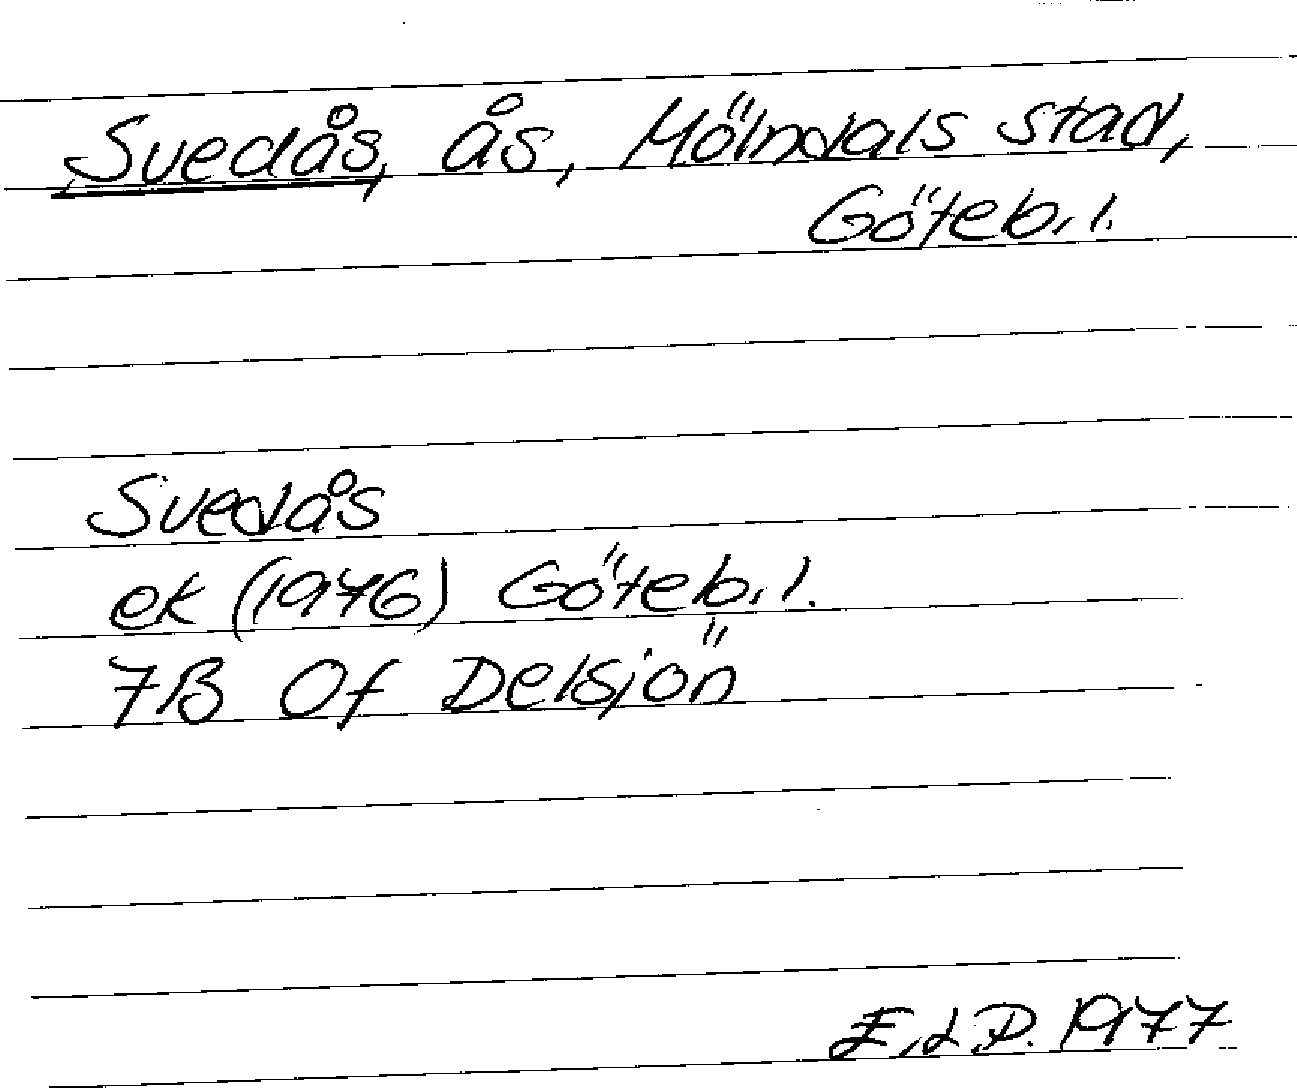 Svedås, ås, Mölndals stad,
Göteb. l.
Svedås
ek (1976) Göteb. l.
7B 0f Delsjön
E. d P. 1977